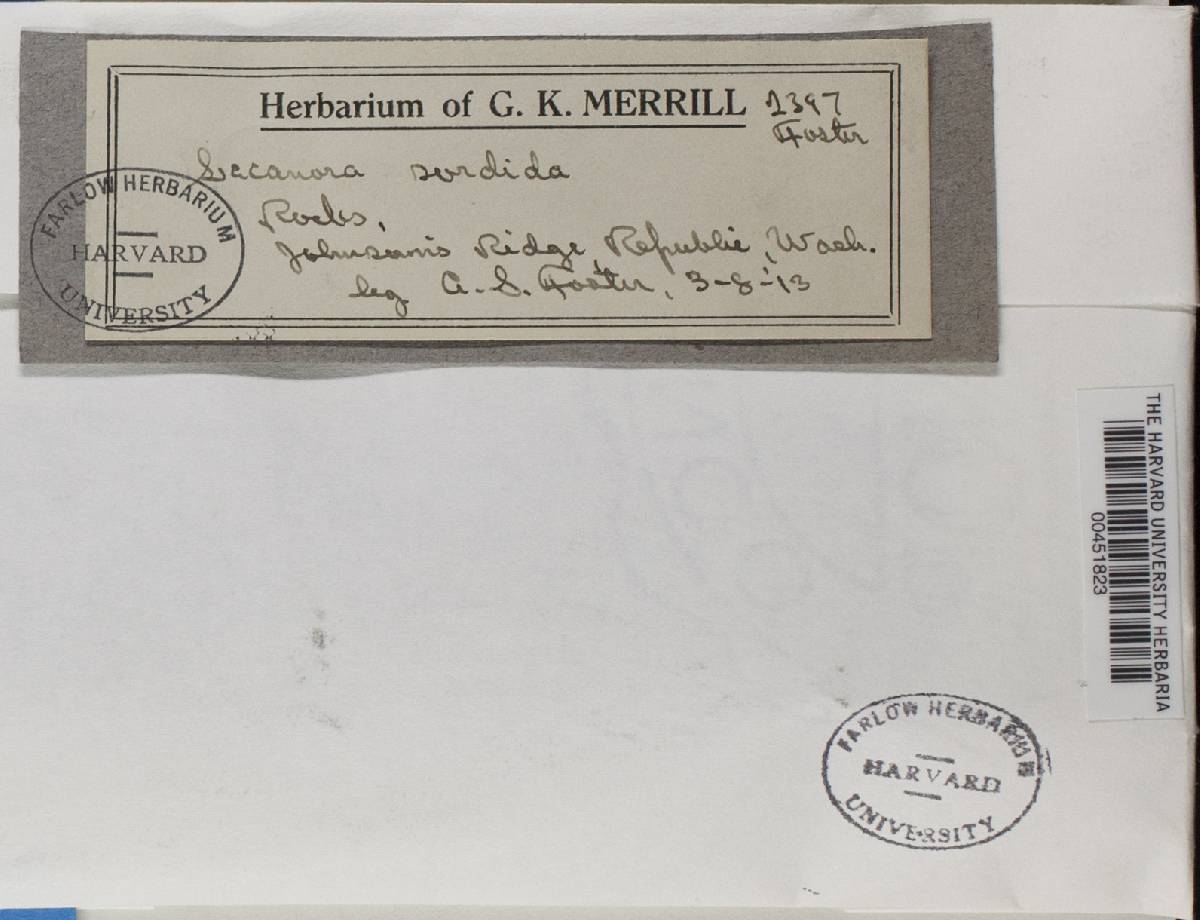 Herbarium of G. K. MERRILL 1397
Foster
Lecanora sordida
Rocks,
Johnson's Ridge, Republic, Wash.
leg A. S. Foster, 3-8-'13
FARLOW HERBARIUM
HARVARD
UNIVERSITY
THE HARVARD UNIVERSITY HERBARIA
00451823
FARLOW HERBARIUM
HARVARD
UNIVERSITY